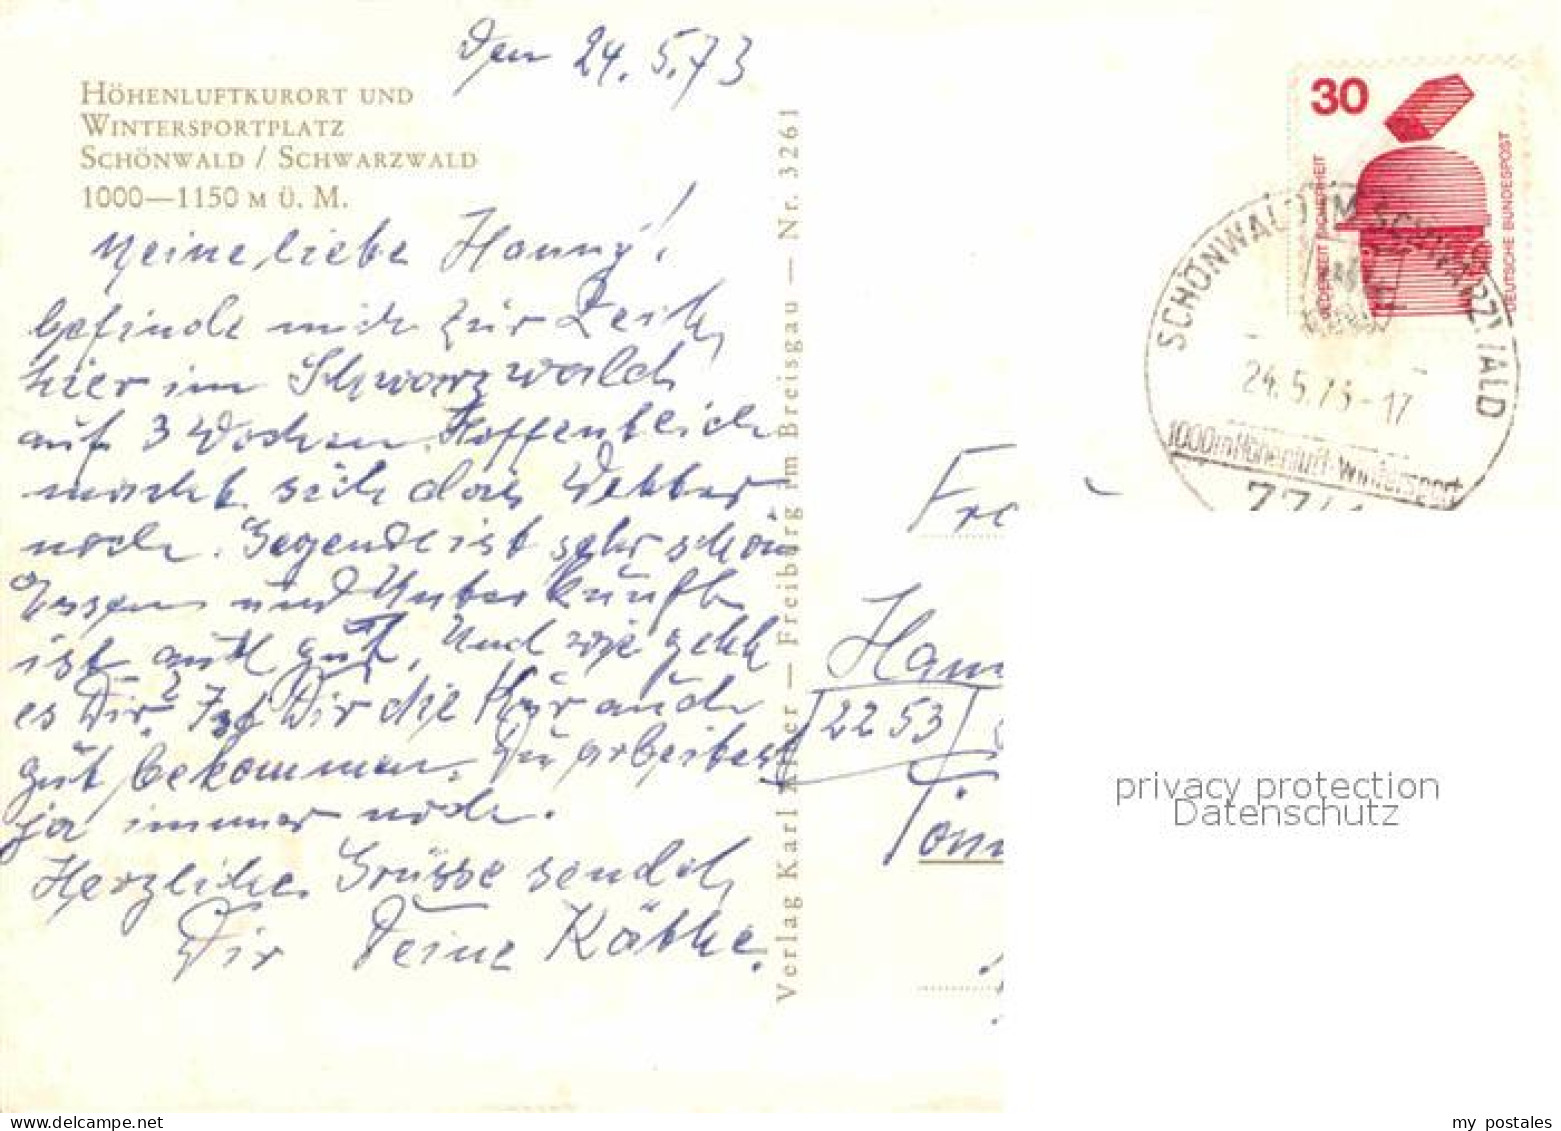 Den 24.5.73
HÖHENLUFTKURORT UND
WINTERSPORTPLATZ
SCHÖNWALD / SCHWARZWALD
1000—1150 M Ü. M.
Meine liebe Hanny!
befinde mich zur Zeit
hier im Schwarzwald
auf 3 Wochen. Hoffentlich
macht sich das Wetter
noch. Gegend ist sehr schön
Essen und Unterkunft
ist auch gut. Und wie geht
es Dir? Ist Dir die Kur auch
gut bekommen. Du arbeitest
ja immer noch.
Herzliche Grüsse sendet
Dir Deine Käthe.
Verlag Karl Alber — Freiburg im Breisgau — Nr. 3261
30
JEDERZEIT SICHERHEIT
DEUTSCHE BUNDESPOST
SCHÖNWALD IM SCHWARZWALD
24.5.73-17
1000m Höhenluft-Wintersport
Fra
Hann
2253
Tönn
privacy protection
Datenschutz
my postales